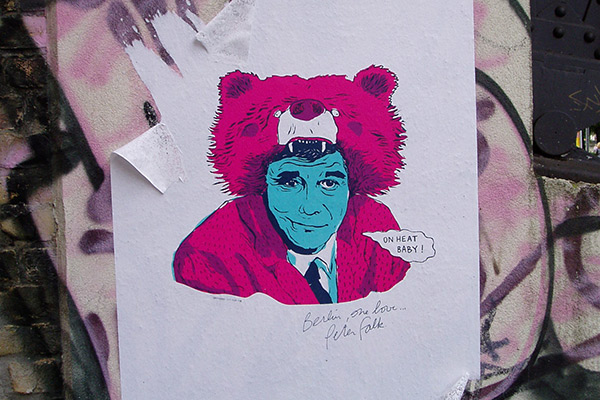 ON HEAT
BABY!
Berlin, one love...
Peter Falk